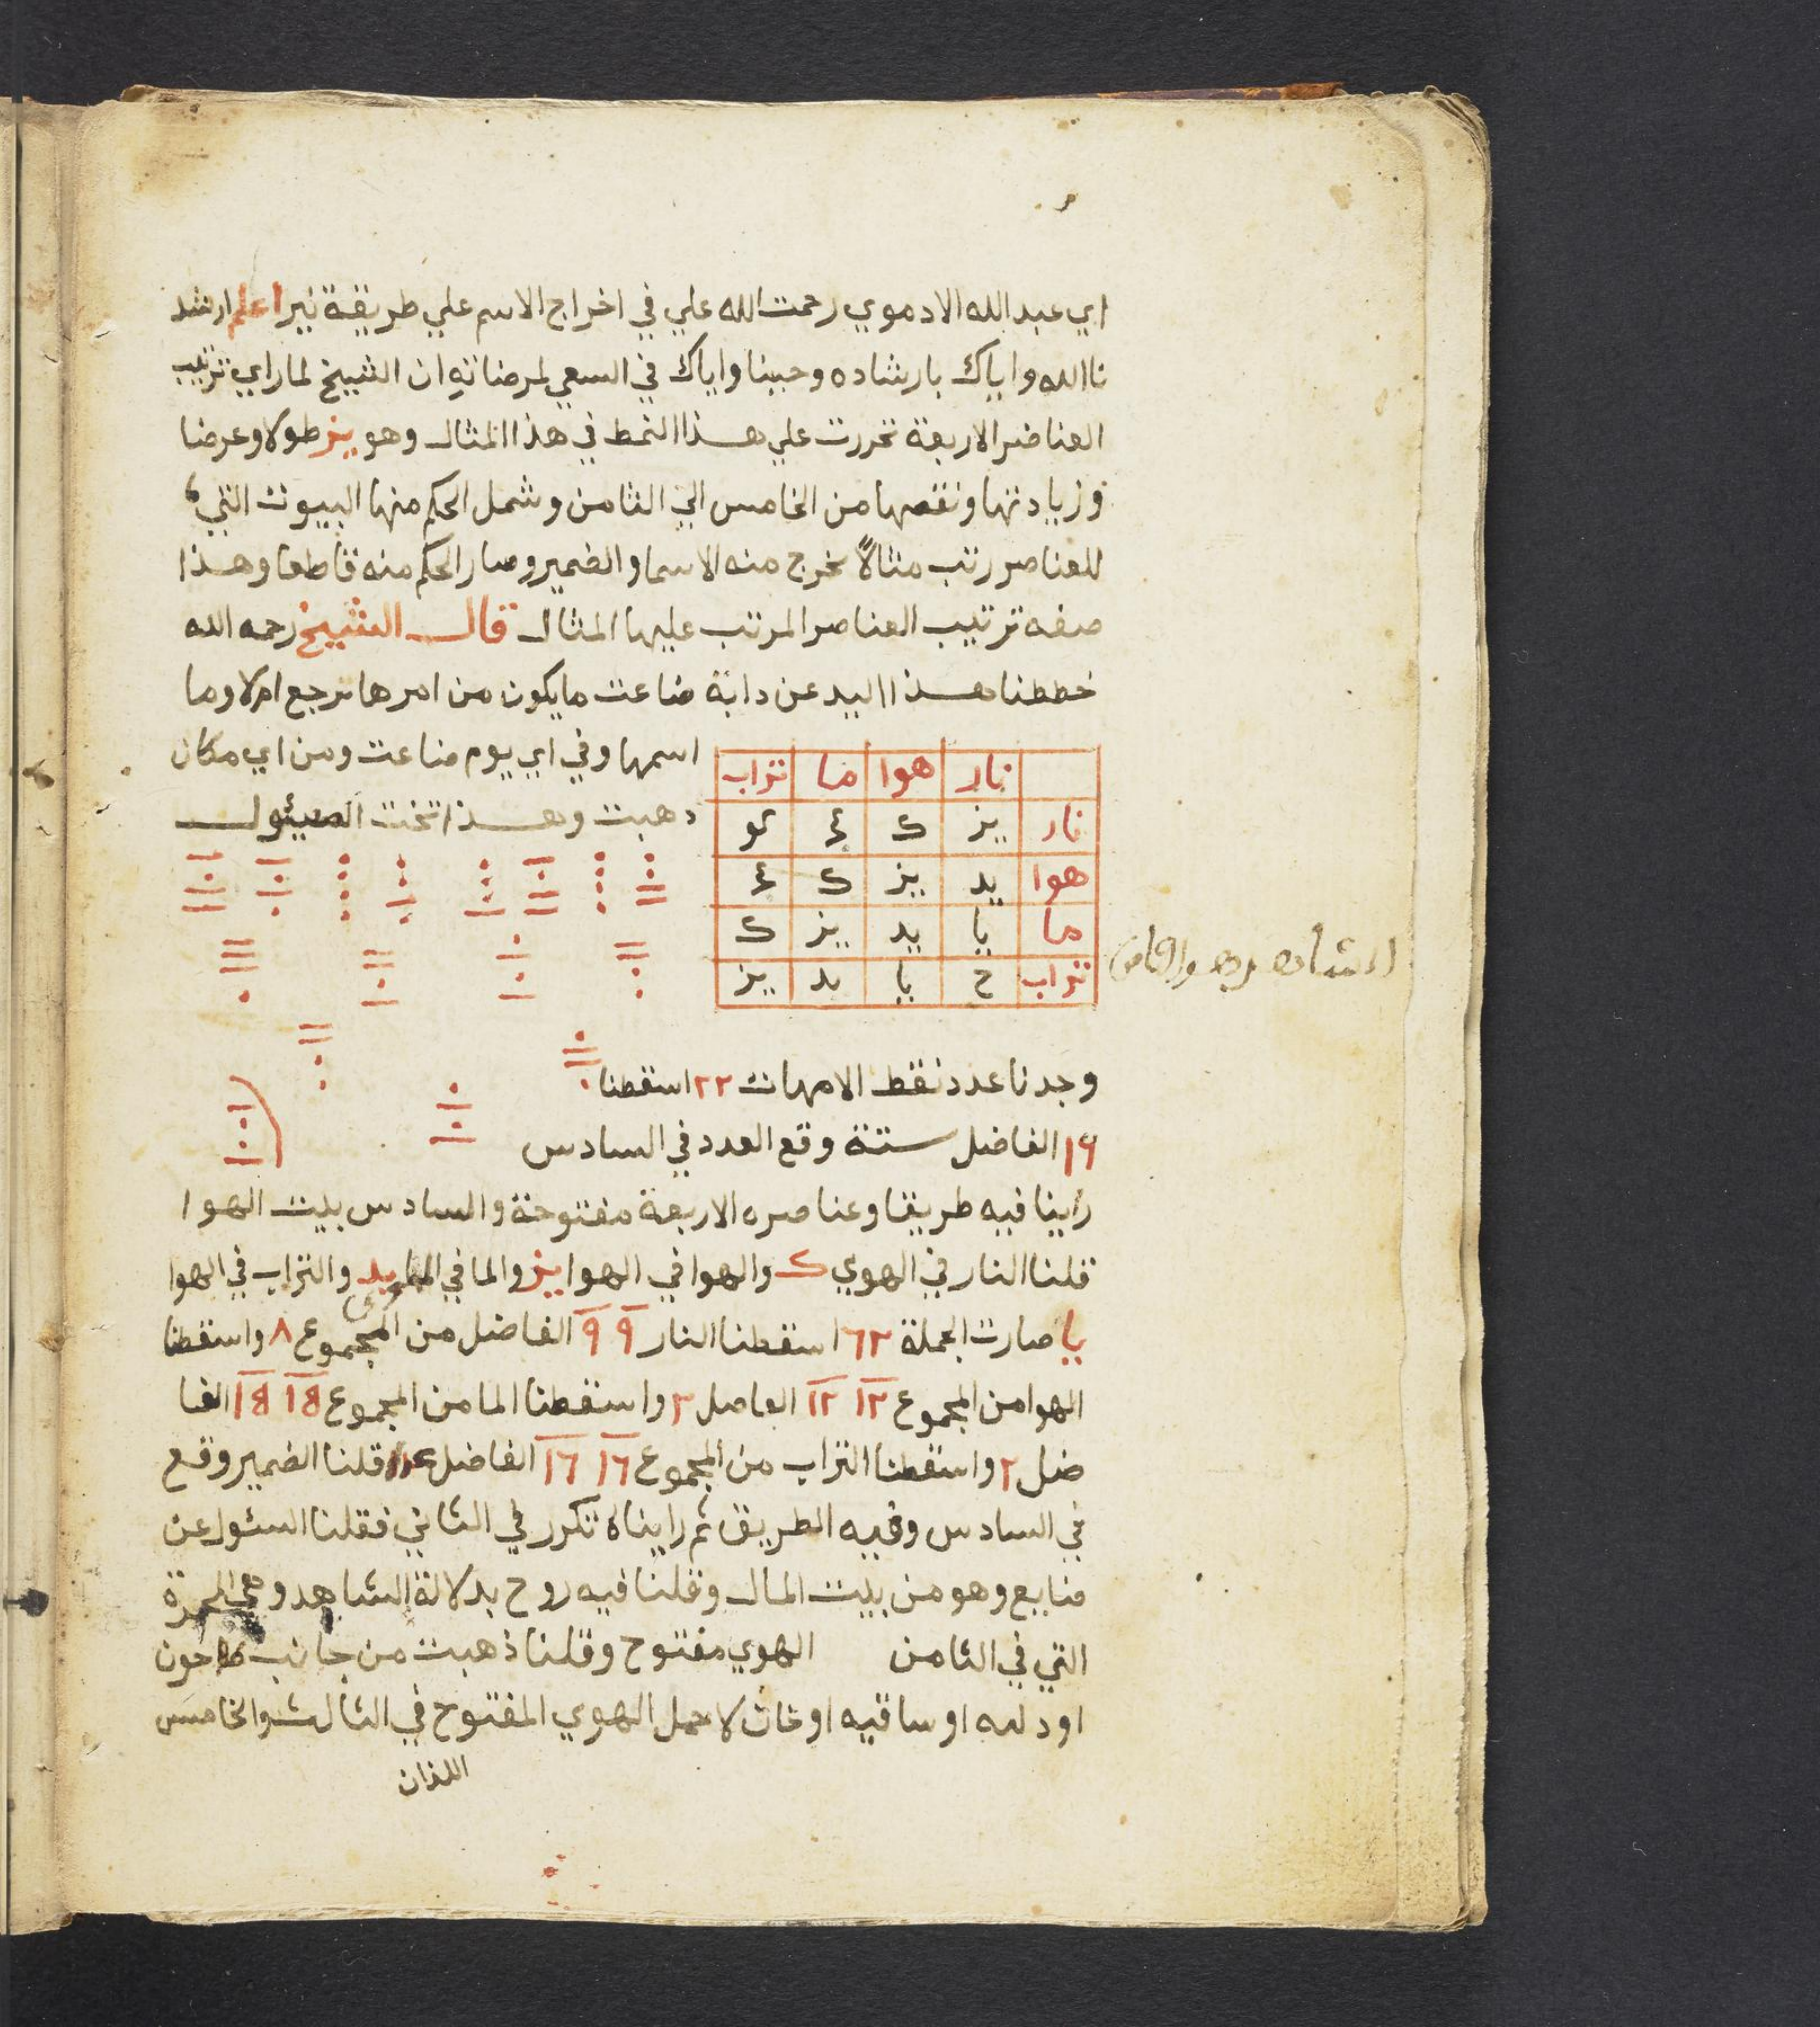 ابي عبد الله الادموي رحمت الله علي في اخراج الاسم علي طريقة نيرا اعلم ارشد
نا الله واياك بارشاده وحبينا واياك في السعي لمرضاته ان الشيخ لما راي ترتيب
العناصر الاربعة تحررت علي هذا النمط في هذا المثال وهو يز طولا وعرضا
وزيادتها ونقصها من الخامس الي الثامن وشمل الحكم منها البيوت التي
للعناصر رتب مثالاً يخرج منه الاسما والضمير وصار الحكم منه قاطعا وهذا
صفه ترتيب العناصر المرتب عليها المثال قال الشيخ رحمه الله
خططنا هذا اليد عن دابة ضاعت ما يكون من امرها ترجع ام لا وما
اسمها وفي اي يوم ضاعت ومن اي مكان
ذهبت وهذا تخت المسئول
نار هوا ما تراب
نار يز ك كو
هوا يد يز ك
ما يا يد يز ك
تراب ح يا يد يز
وجدنا عدد نقط الامهات ٢٢ اسقطنا
١٦ الفاضل ستة وقع العدد في السادس
راينا فيه طريقا وعناصره الاربعة مفتوحة والسادس بيت الهوا
قلنا النار في الهوي ك والهوا في الهوا يز والما في يد والتراب في الهوا
يا صارت الجملة ٦٢ اسقطنا النار ٩ ٩ الفاضل من المجموع ٨ واسقطنا
الهوا من المجموع ١٢ ١٢ الفاصل ٢ واسقطنا الما من المجموع ١٥ ١٥ الفا
ضل ٢ واسقطنا التراب من المجموع ١٦ ١٦ الفاضل قلنا الضمير وقع
في السادس وفيه الطريق ثم رايناه تكرر في الثاني فقلنا السئول عن
ضايع وهو من بيت المال وقلنا فيه روح بدلالة الشاهد وهي الحمرة
التي في الثامن الهوي مفتوح وقلنا ذهبت من جانب طاحون
او او ساقيه او خان لاجل الهوي المفتوح في الثالث والخامس
اللذان